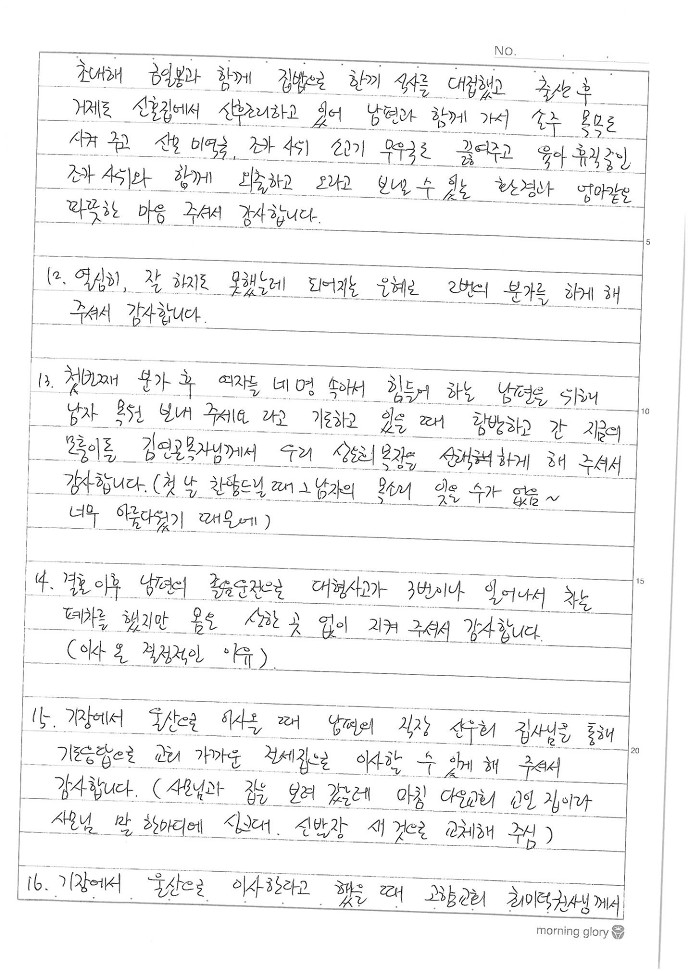 NO.
초대해 금일봉과 함께 집밥으로 한끼 식사를 대접했고 출산 후
거제도 신혼집에서 산후조리하고 있어 남편과 함께 가서 손주 목욕
시켜 주고 산모 미역국, 조카 사위 소고기 무우국도 끓여주고 육아 휴직중인
조카 사위와 함께 외출하고 오라고 보내줄 수 있는 환경과 엄마같은
따뜻한 마음 주셔서 감사합니다.
5
12. 열심히, 잘 하지도 못했는데 되어지는 은혜로 2번의 분가를 하게 해
주셔서 감사합니다.
13. 첫번째 분가 후 여자들 네 명 속아서 힘들어 하는 남편을 위해
10
남자 목원 보내 주세요 라고 기도하고 있을 때 탐방하고 간 지금의
김연골목자님께서 우리 목장을 선택해하게 해 주셔서
감사합니다. (첫 날 찬양드릴 때 그 남자의 목소리 잊을 수가 없음~
너무 아름다웠기 때문에)
15
14. 결혼 이후 남편의 졸음운전으로 대형사고가 3번이나 일어나서 차는
폐차를 했지만 몸은 상한 곳 없이 지켜 주셔서 감사합니다.
(이사 온 결정적인 이유)
15. 기장에서 울산으로 이사올 때 남편의 직장 신우회 집사님을 통해
20
기도응답으로 교회 가까운 전세집으로 이사할 수 있게 해 주셔서
감사합니다. (사모님과 집을 보러 갔는데 마침 다운교회 교인 집이라
사모님 말 한마디에 싱크대. 신발장 새 것으로 교체해 주심)
16. 기장에서 울산으로 이사한다고 했을 때 고향교회 최미덕권사님께서
morning glory